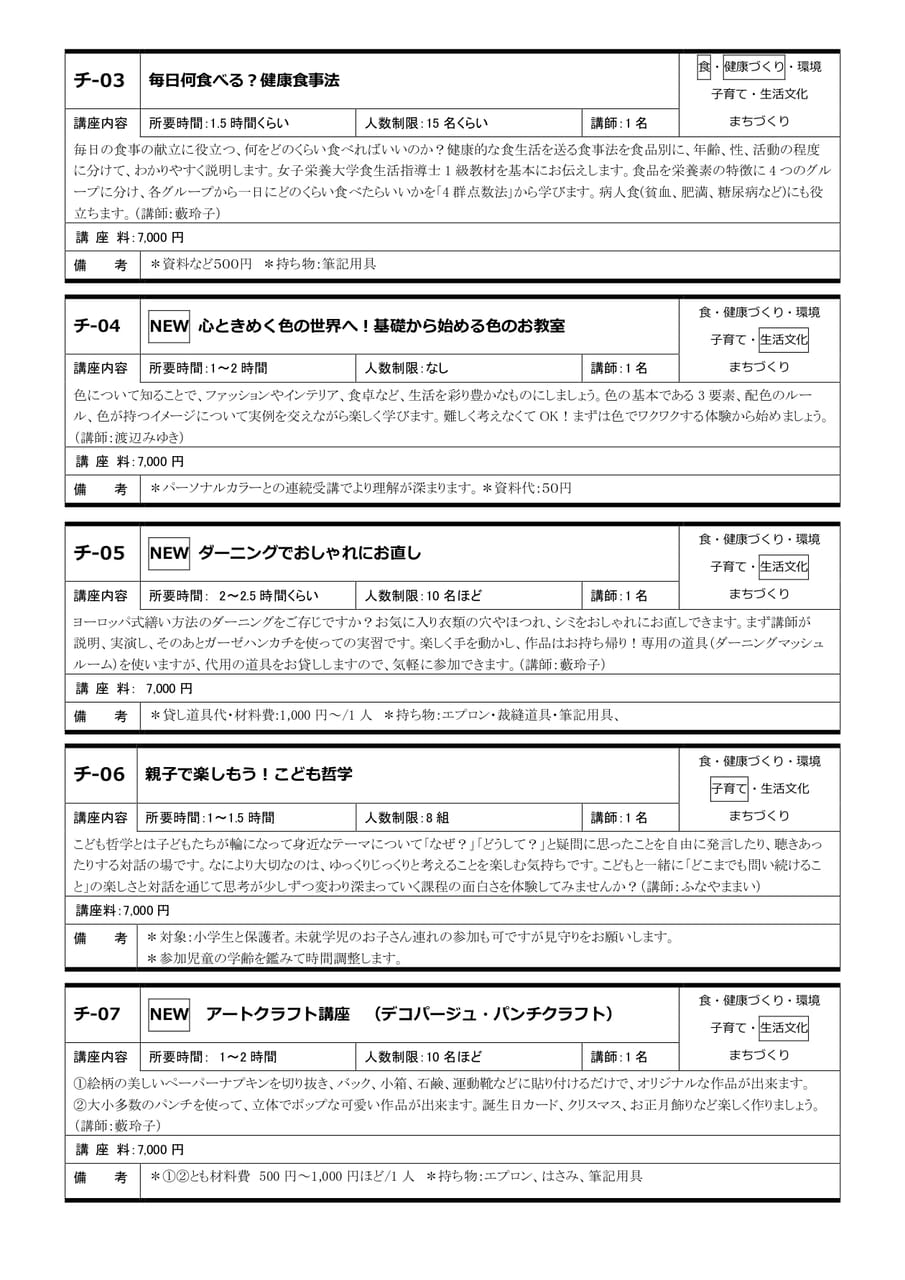 チ-03
毎日何食べる？健康食事法
食・健康づくり・環境
子育て・生活文化
まちづくり
講座内容
所要時間：1.5 時間くらい
人数制限：15 名くらい
講師：1 名
毎日の食事の献立に役立つ、何をどのくらい食べればいいのか？健康的な食生活を送る食事法を食品別に、年齢、性、活動の程度
に分けて、わかりやすく説明します。女子栄養大学食生活指導士 1 級教材を基本にお伝えします。食品を栄養素の特徴に 4 つのグル
ープに分け、各グループから一日にどのくらい食べたらいいかを「4 群点数法」から学びます。病人食(貧血、肥満、糖尿病など)にも役
立ちます。（講師：藪玲子）
講 座 料：7,000 円
備　考
＊資料など５００円　＊持ち物：筆記用具
チ-04
NEW 心ときめく色の世界へ！基礎から始める色のお教室
食・健康づくり・環境
子育て・生活文化
まちづくり
講座内容
所要時間：1～2 時間
人数制限：なし
講師：1 名
色について知ることで、ファッションやインテリア、食卓など、生活を彩り豊かなものにしましょう。色の基本である 3 要素、配色のルー
ル、色が持つイメージについて実例を交えながら楽しく学びます。難しく考えなくて OK！まずは色でワクワクする体験から始めましょう。
（講師：渡辺みゆき）
講 座 料：7,000 円
備　考
＊パーソナルカラーとの連続受講でより理解が深まります。＊資料代：５０円
チ-05
NEW ダーニングでおしゃれにお直し
食・健康づくり・環境
子育て・生活文化
まちづくり
講座内容
所要時間： 2～2.5 時間くらい
人数制限：10 名ほど
講師：1 名
ヨーロッパ式繕い方法のダーニングをご存じですか？お気に入り衣類の穴やほつれ、シミをおしゃれにお直しできます。まず講師が
説明、実演し、そのあとガーゼハンカチを使っての実習です。楽しく手を動かし、作品はお持ち帰り！専用の道具（ダーニングマッシュ
ルーム）を使いますが、代用の道具をお貸ししますので、気軽に参加できます。（講師：藪玲子）
講 座 料： 7,000 円
備　考
＊貸し道具代・材料費：1,000 円～/1 人　＊持ち物：エプロン・裁縫道具・筆記用具、
チ-06
親子で楽しもう！こども哲学
食・健康づくり・環境
子育て・生活文化
まちづくり
講座内容
所要時間：1～1.5 時間
人数制限：8 組
講師：1 名
こども哲学とは子どもたちが輪になって身近なテーマについて「なぜ？」「どうして？」と疑問に思ったことを自由に発言したり、聴きあっ
たりする対話の場です。なにより大切なのは、ゆっくりじっくりと考えることを楽しむ気持ちです。こどもと一緒に「どこまでも問い続けるこ
と」の楽しさと対話を通じて思考が少しずつ変わり深まっていく課程の面白さを体験してみませんか？（講師：ふなやままい）
講座料：7,000 円
備　考
＊対象：小学生と保護者。未就学児のお子さん連れの参加も可ですが見守りをお願いします。
＊参加児童の学齢を鑑みて時間調整します。
チ-07
NEW　アートクラフト講座　（デコパージュ・パンチクラフト）
食・健康づくり・環境
子育て・生活文化
まちづくり
講座内容
所要時間： 1～2 時間
人数制限：10 名ほど
講師：1 名
①絵柄の美しいペーパーナプキンを切り抜き、バック、小箱、石鹸、運動靴などに貼り付けるだけで、オリジナルな作品が出来ます。
②大小多数のパンチを使って、立体でポップな可愛い作品が出来ます。誕生日カード、クリスマス、お正月飾りなど楽しく作りましょう。
（講師：藪玲子）
講 座 料：7,000 円
備　考
＊①②とも材料費 500 円～1,000 円ほど/1 人　＊持ち物：エプロン、はさみ、筆記用具